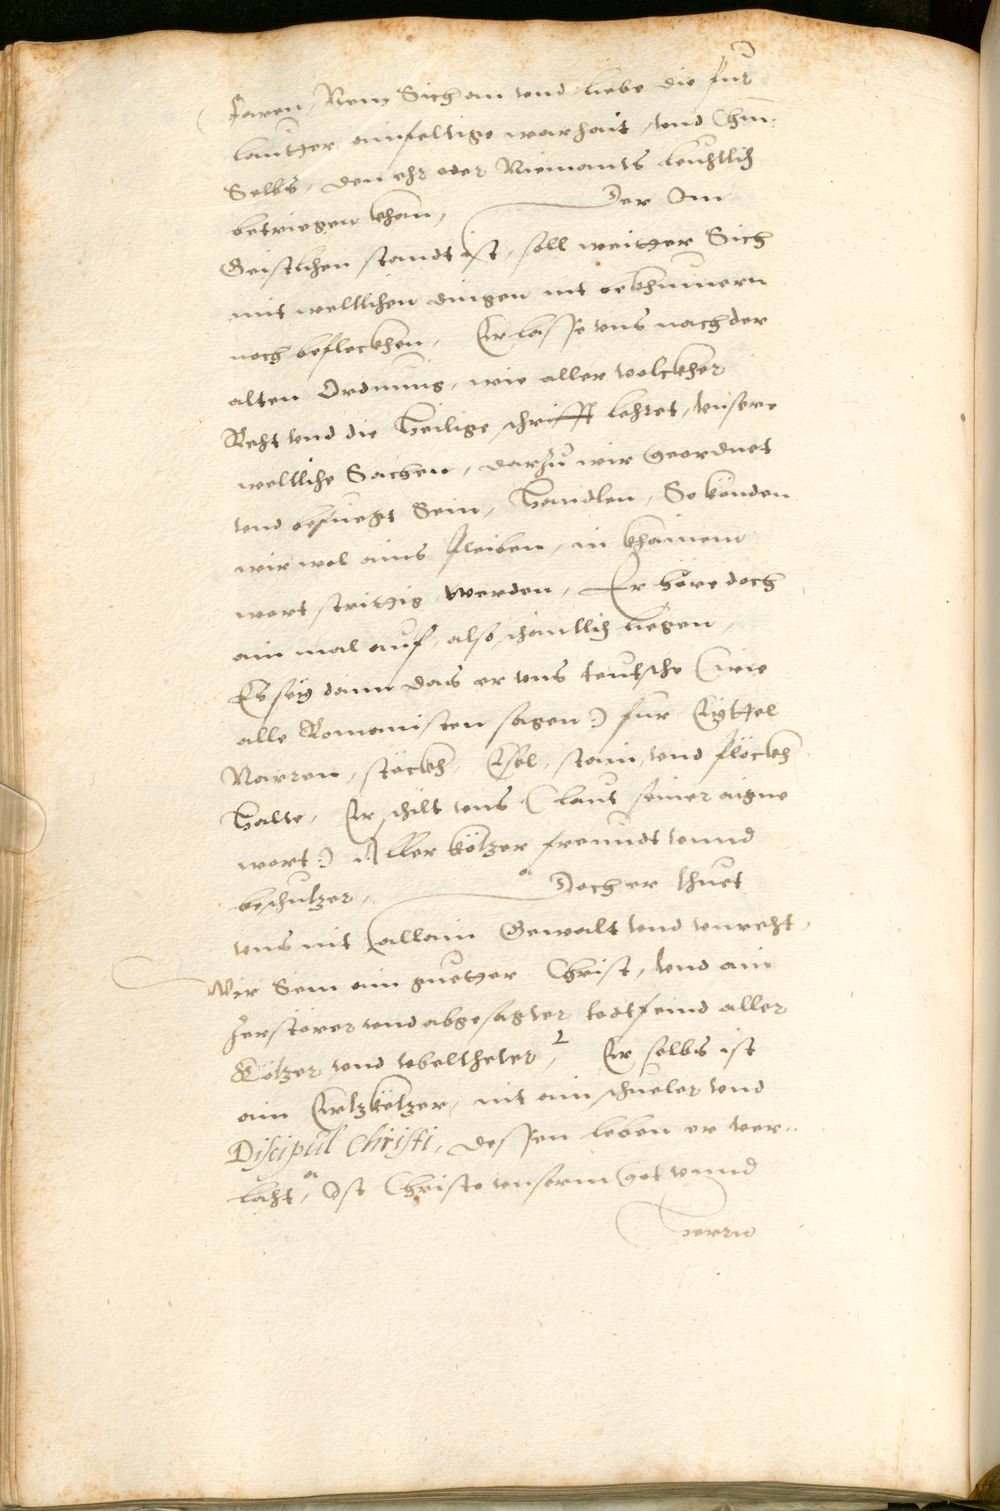 faren, Nem Sich an vnd liebe die fur
lautter ainfeltige warhait, vnd Chm̃:
Selbs, den ehr oder Niemants leuchtlich
betriegen khan, Der Im
Geistlichen standt ist, soll weitter Sich
mit weltlichen dingen nit bekhumern
noch beflecken, Er lasse vns nach der
alten Ordnung, wie aller volckher
Recht vnd die heilige schrifft lehret, vnsere
weltliche Sachen, darzu wir Geordnet
vnd befuegt Sein, handlen, So künden
wir wol ains bleiben, in khainem
wort strittig werden, Er höre doch
ain mal auf, also schantlich liegen,
Es seÿ dann das er vns teutsche (wie
alle Romanisten sagen:) fur Eyttel
Narren, stöckh, Esel, stain, vnd plöckh
halte, Er schilt vns (laut seiner aigne
wort:) Aller ketzer freundt vnnd
beschutzer, Doch er thuet
vns nit allain Gewalt vnd vnrecht,
Wir Sein ain guetter Christ, vnd ain
Zerstörer vnd abgesagter todtfeind aller
Ketzer vnd vbeltheter, Er selbs ist
ain Ertzketzer, nit ain schueler vnd
Discipul Christi, dessen leben er ver:
lacht, Ist Christo vnserm Got vnnd
herrn